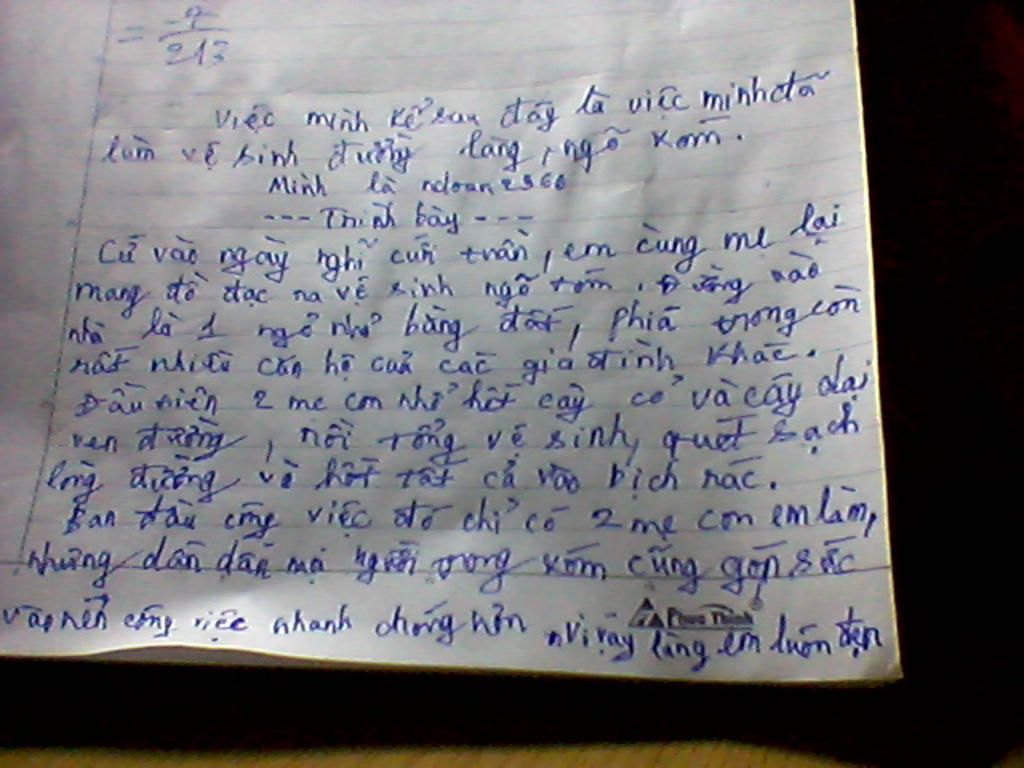 = 7/213
Việc mình kể sau đây là việc mình đã
làm vệ sinh đường làng, ngõ xóm.
Mình là ndoan2960
--- Trình bày ---
Cứ vào ngày nghỉ cuối tuần, em cùng mẹ lại
mang đồ đạc ra vệ sinh ngõ xóm. Đường vào
nhà là 1 ngõ nhỏ bằng đất, phía trong còn
rất nhiều căn hộ của các gia đình khác.
Đầu tiên 2 mẹ con nhổ hết cây cỏ và cây dại
ven đường, rồi tổng vệ sinh, quét sạch
lòng đường và hốt tất cả vào bịch rác.
Ban đầu công việc đó chỉ có 2 mẹ con em làm,
nhưng dần dần mọi người trong xóm cũng góp sức
vào nên công việc nhanh chóng hơn, vì vậy làng em luôn đẹp
Phuc Thinh